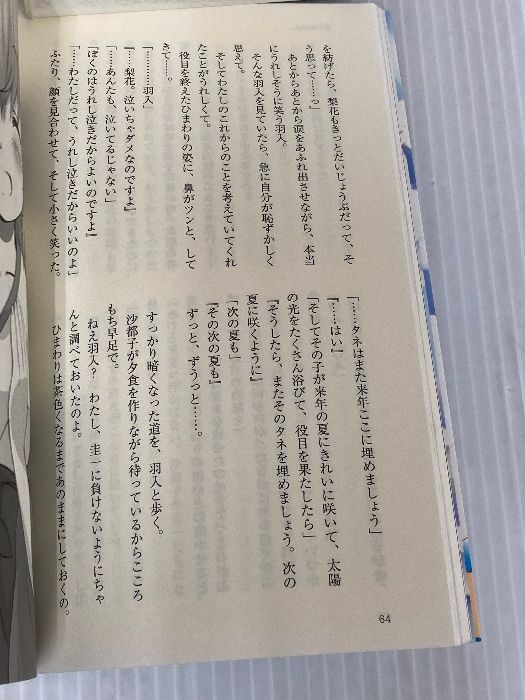 を紡げたら、梨花もきっとだいじょうぶだって、そ
う思って……っ」
あとからあとから涙をあふれ出させながら、本当
にうれしそうに笑う羽入。
そんな羽入を見ていたら、急に自分が恥ずかしく
思えて。
そしてわたしのこれからのことを考えていてくれ
たことがうれしくて。
役目を終えたひまわりの姿に、鼻がツンと、して
きて……。
「…………羽入」
『……梨花。泣いちゃダメなのですよ』
「……あんたも、泣いてるじゃない」
『ぼくのはうれし泣きだからよいのですよ』
「……わたしだって、うれし泣きだからいいのよ」
ふたり、顔を見合わせて、そして小さく笑った。
「……タネはまた来年ここに埋めましょう」
『……はい』
「そしてその子が来年の夏にきれいに咲いて、太陽
の光をたくさん浴びて、役目を果たしたら」
『そうしたら、またそのタネを埋めましょう。次の
夏に咲くように』
「次の夏も」
『その次の夏も』
ずっと、ずうっと……。
すっかり暗くなった道を、羽入と歩く。
沙都子が夕食を作りながら待っているからこころ
もち早足で。
ねえ羽入？　わたし、圭一に負けないようにちゃ
んと調べておいたのよ。
ひまわりは茶色くなるまであのままにしておくの。
64